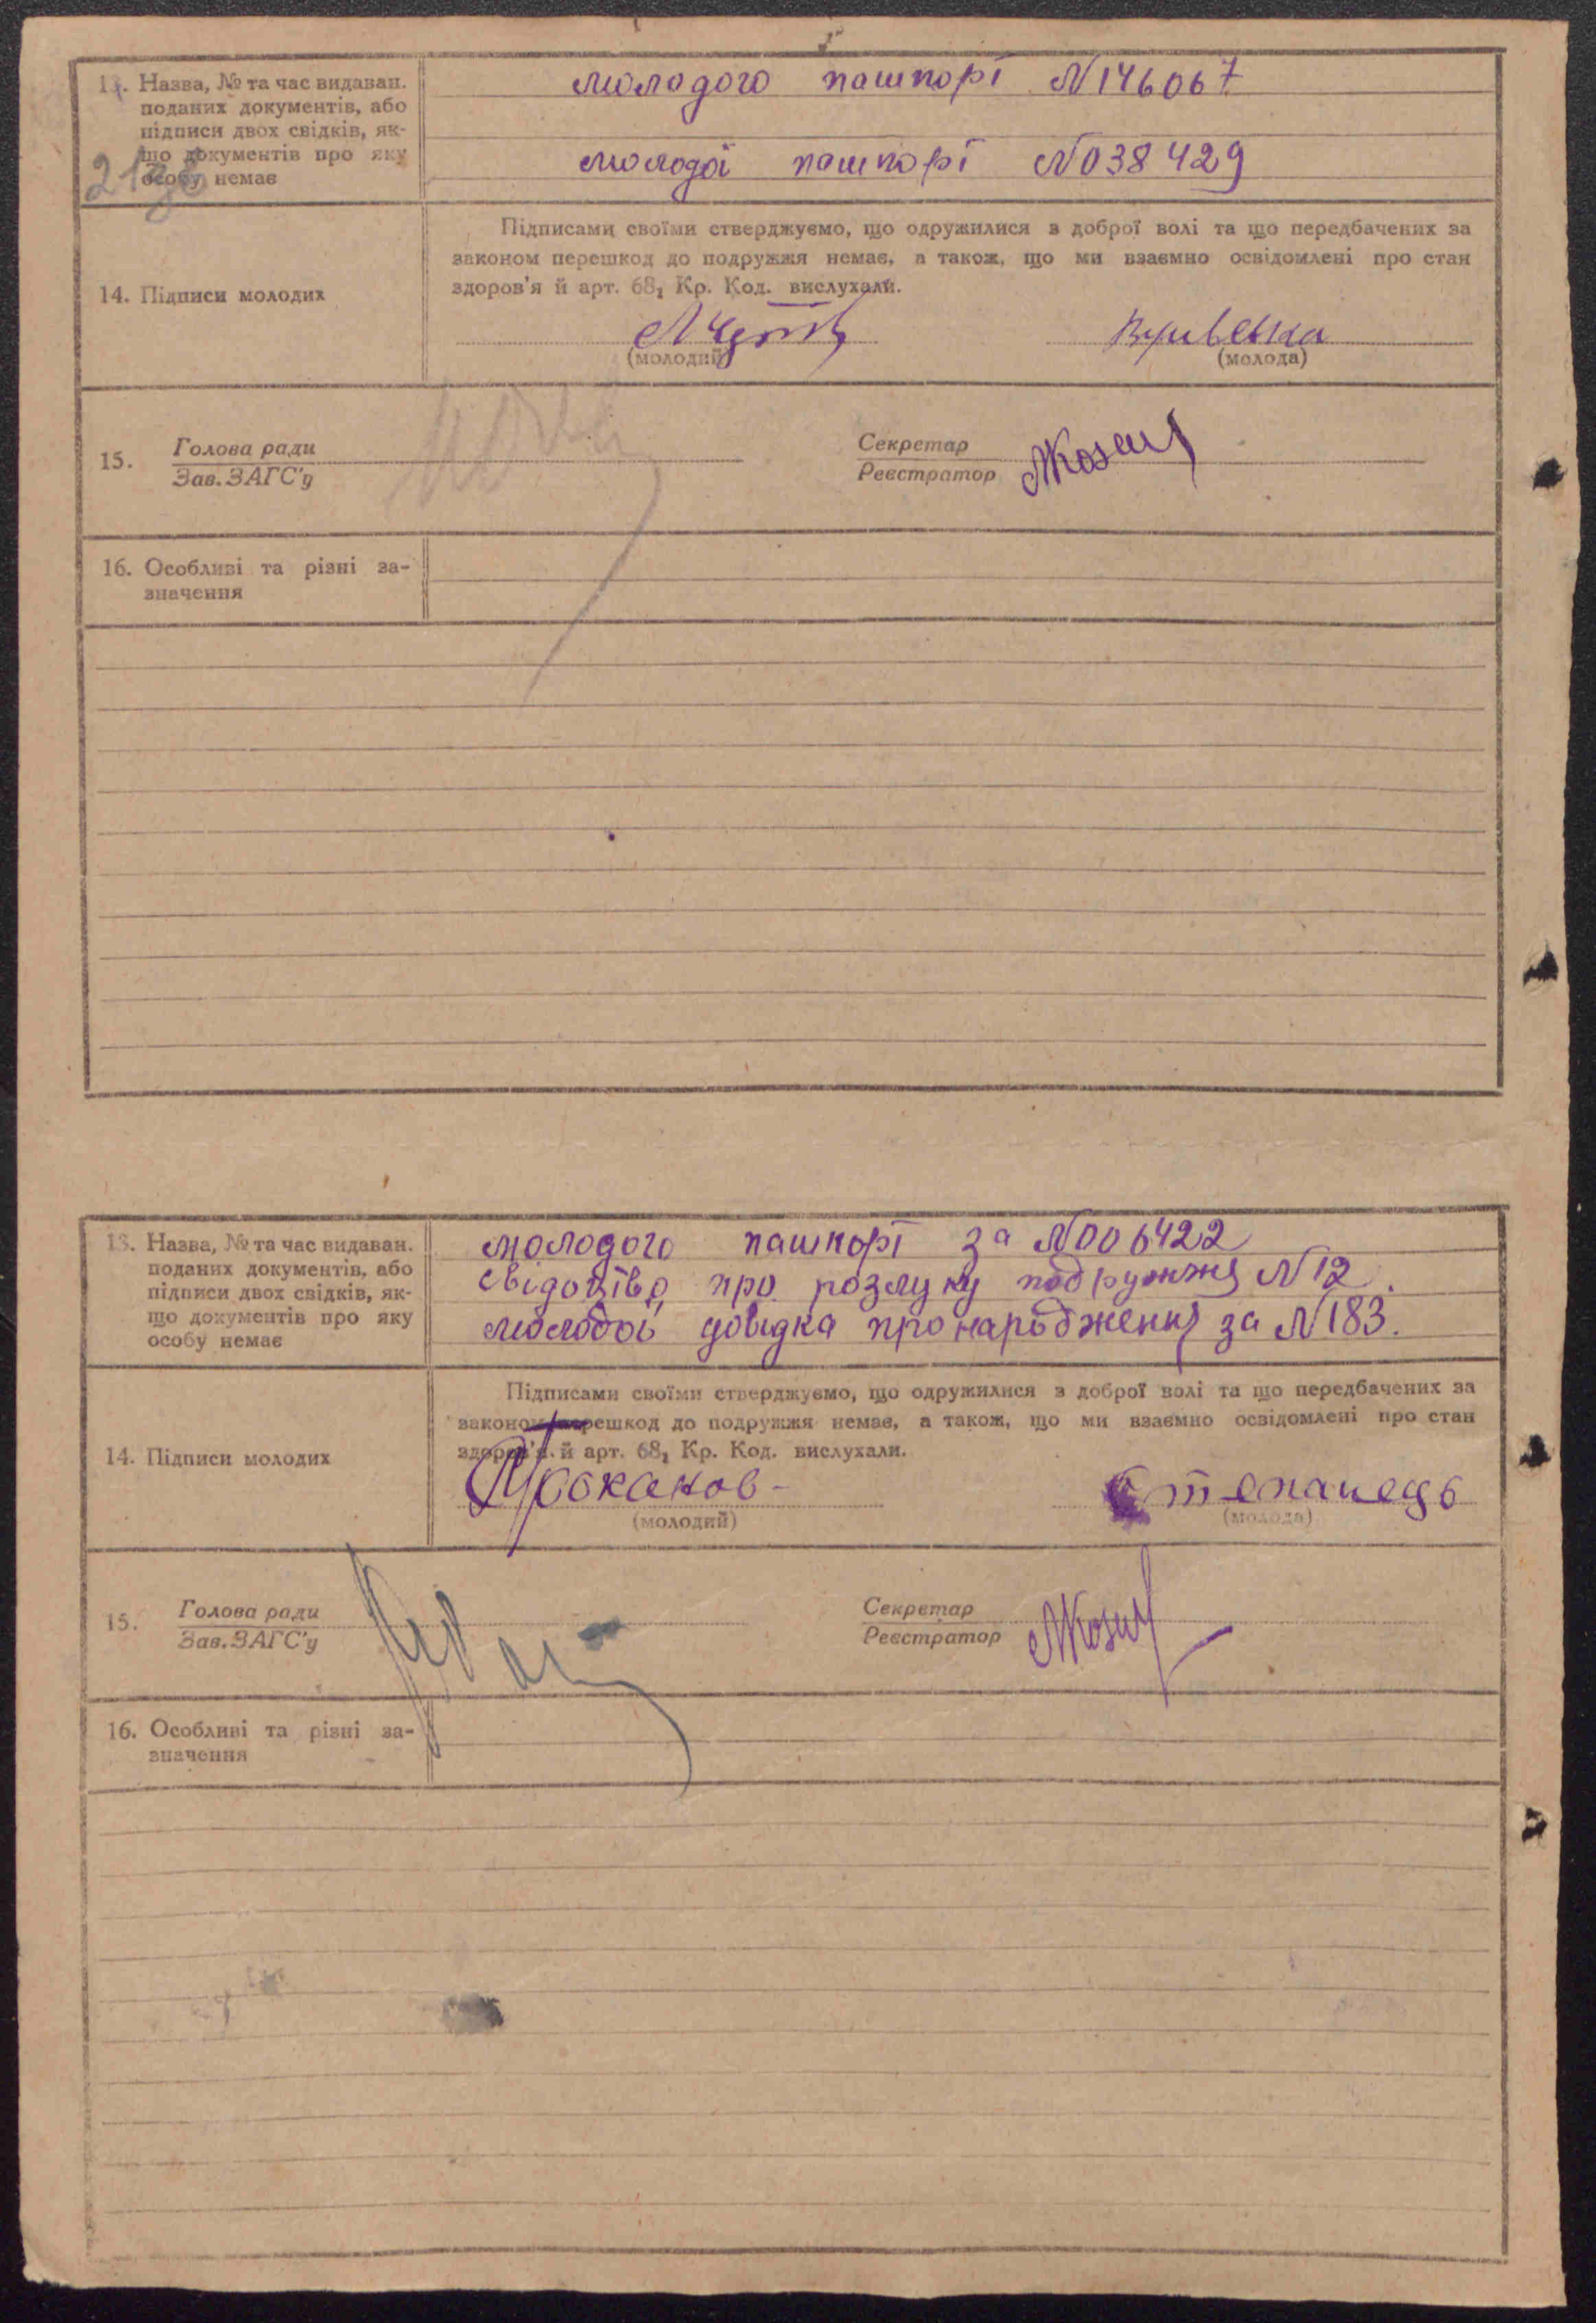 13. Назва, № та час видаван.
поданих документів, або
підписи двох свідків, як-
що документів про яку
особу немає
молодого пашпорт N 146067
молодої пашпорт N 038429
Підписами своїми стверджуємо, що одружилися з доброї волі та що передбачених за
законом перешкод до подружжя немає, а також, що ми взаємно освідомлені про стан
здоров'я й арт. 68₁ Кр. Код. вислухали.
14. Підписи молодих
(молодий)
(молода)
15. Голова ради
Зав. ЗАГС'у
Секретар
Реєстратор
16. Особливі та різні за-
значення
13. Назва, № та час видаван.
поданих документів, або
підписи двох свідків, як-
що документів про яку
особу немає
молодого пашпорт за N 006422
свідоцтво про розлуку подружжя N 12.
молодої довідка про народження за N 183.
Підписами своїми стверджуємо, що одружилися з доброї волі та що передбачених за
законом перешкод до подружжя немає, а також, що ми взаємно освідомлені про стан
здоров'я й арт. 68₁ Кр. Код. вислухали.
14. Підписи молодих
Степанець
(молодий)
(молода)
15. Голова ради
Зав. ЗАГС'у
Секретар
Реєстратор
16. Особливі та різні за-
значення